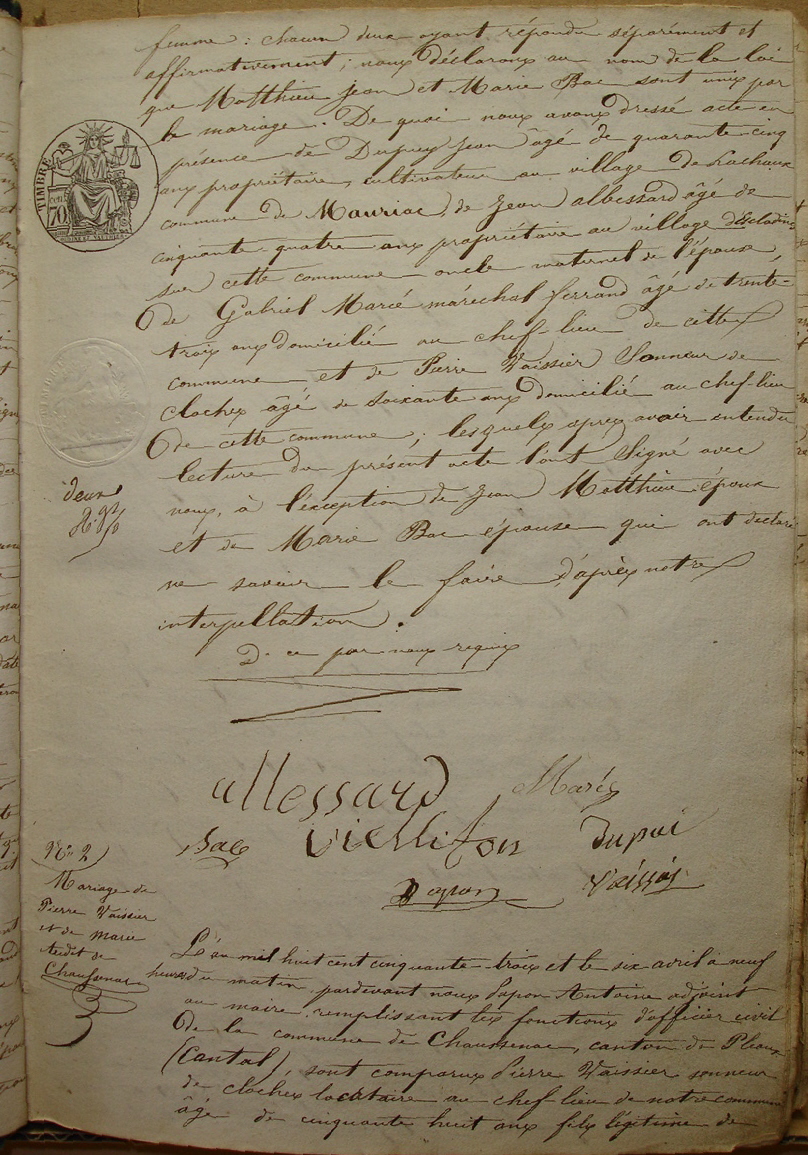 femme : chacun deux ayant répondu séparément et
affirmativement ; nous déclarons au nom de la loi
que Matthieu Jean et Marie Bac sont unis par
le mariage. De quoi nous avons dressé acte en
présence de Dupuy Jean âgé de quarante-cinq
ans propriétaire, cultivateur au village de Lachaux
commune de Mauriac, de Jean albessard âgé de
cinquante-quatre ans propriétaire au village
sur cette commune oncle maternel de l'épouse,
de Gabriel Marié maréchal ferrand âgé de trente-
trois ans domicilié au chef-lieu de cette
commune, et de Pierre Vaissier Sonneur de
cloches âgé de soixante ans domicilié au chef-lieu
de cette commune ; lesquels après avoir entendu
lecture du présent acte l'ont Signé avec
nous, à l'exception de Jean Matthieu époux
et de Marie Bac épouse qui ont déclaré
ne savoir le faire d'après notre
interpellation.
De ce par nous requis
TIMBRE
70
deux
allessard Marié
Bac dupui
Papon
N° 2
Mariage de
Pierre Vaissier
et de marie
de
Chaussenac
L'an mil huit cent cinquante-trois et le six avril à neuf
heures du matin, pardevant nous Papon Antoine adjoint
au maire, remplissant les fonctions d'officier civil
de la commune de Chaussenac, canton de Pleaux
(Cantal), sont comparus Pierre Vaissier sonneur
de cloches locataire au chef-lieu de notre commune
âgé de cinquante huit ans fils légitime de